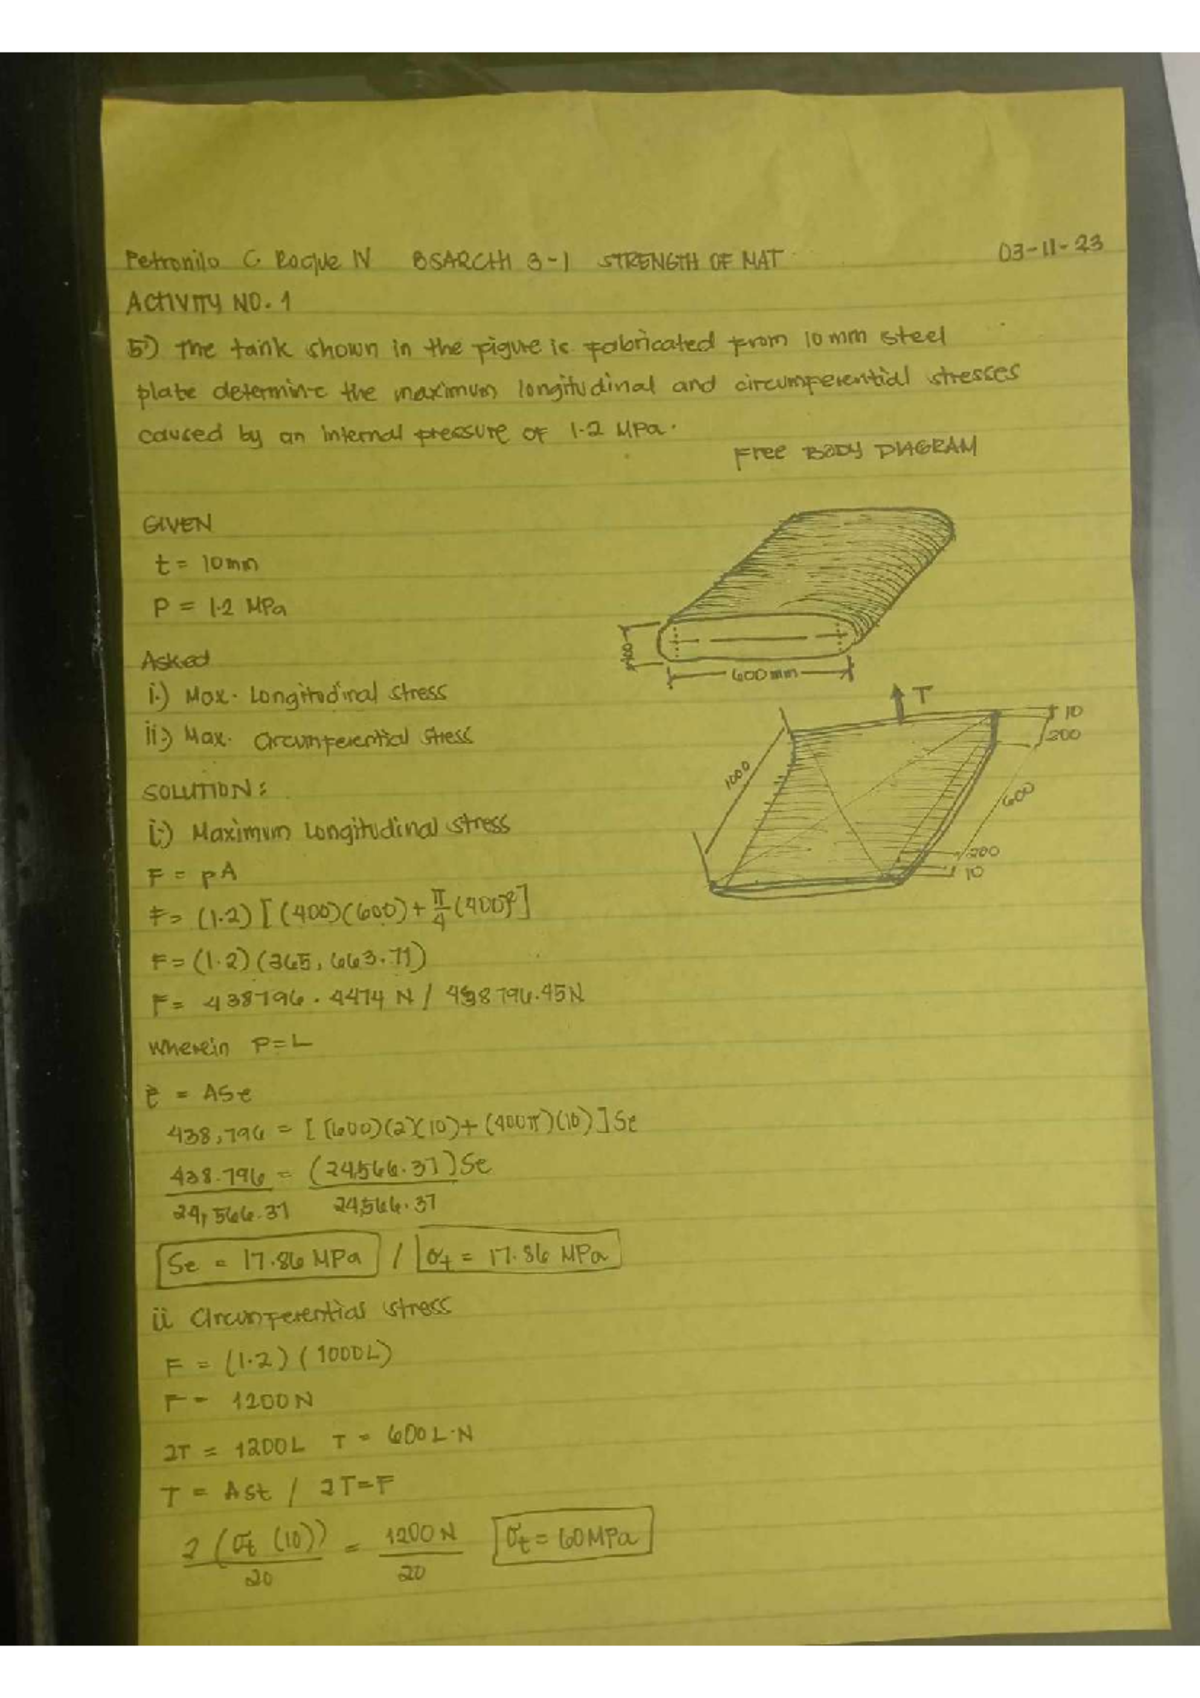 Petronilo C. Roque IV BSARCH 3-1 STRENGTH OF MAT 03-11-23
ACTIVITY NO. 1
5.) The tank shown in the figure is fabricated from 10mm steel
plate determine the maximum longitudinal and circumferential stresses
caused by an internal pressure of 1.2 MPa.
Free BODY DIAGRAM
GIVEN
t = 10mm
P = 1.2 MPa
Asked
i.) Max. Longitudinal stress
ii.) Max. Circumferential stress
400
600mm
T
10
200
1000
600
200
10
SOLUTION:
i.) Maximum Longitudinal stress
F = pA
F = (1.2) [(400)(600) + π/4 (400)²]
F = (1.2) (365,663.71)
F = 438796.4474 N / 438796.45N
wherein P=L
= ASe
438,796 = [(600)(2)(10)+(400π)(10)]Se
438.796 = (24,566.37)Se
24,566.37 24,566.37
Se = 17.86 MPa / σt = 17.86 MPa
ii Circumferential stress
F = (1.2) (1000L)
F = 1200N
2T = 1200L T = 600L·N
T = Ast / 2T=F
2 (σt (10)) = 1200N σt = 60MPa
20 20